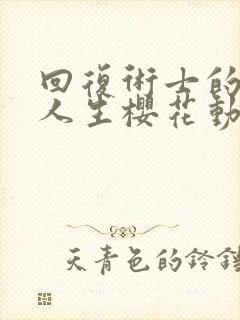 回復術士的
人生櫻花動
天青色的鈴鐺